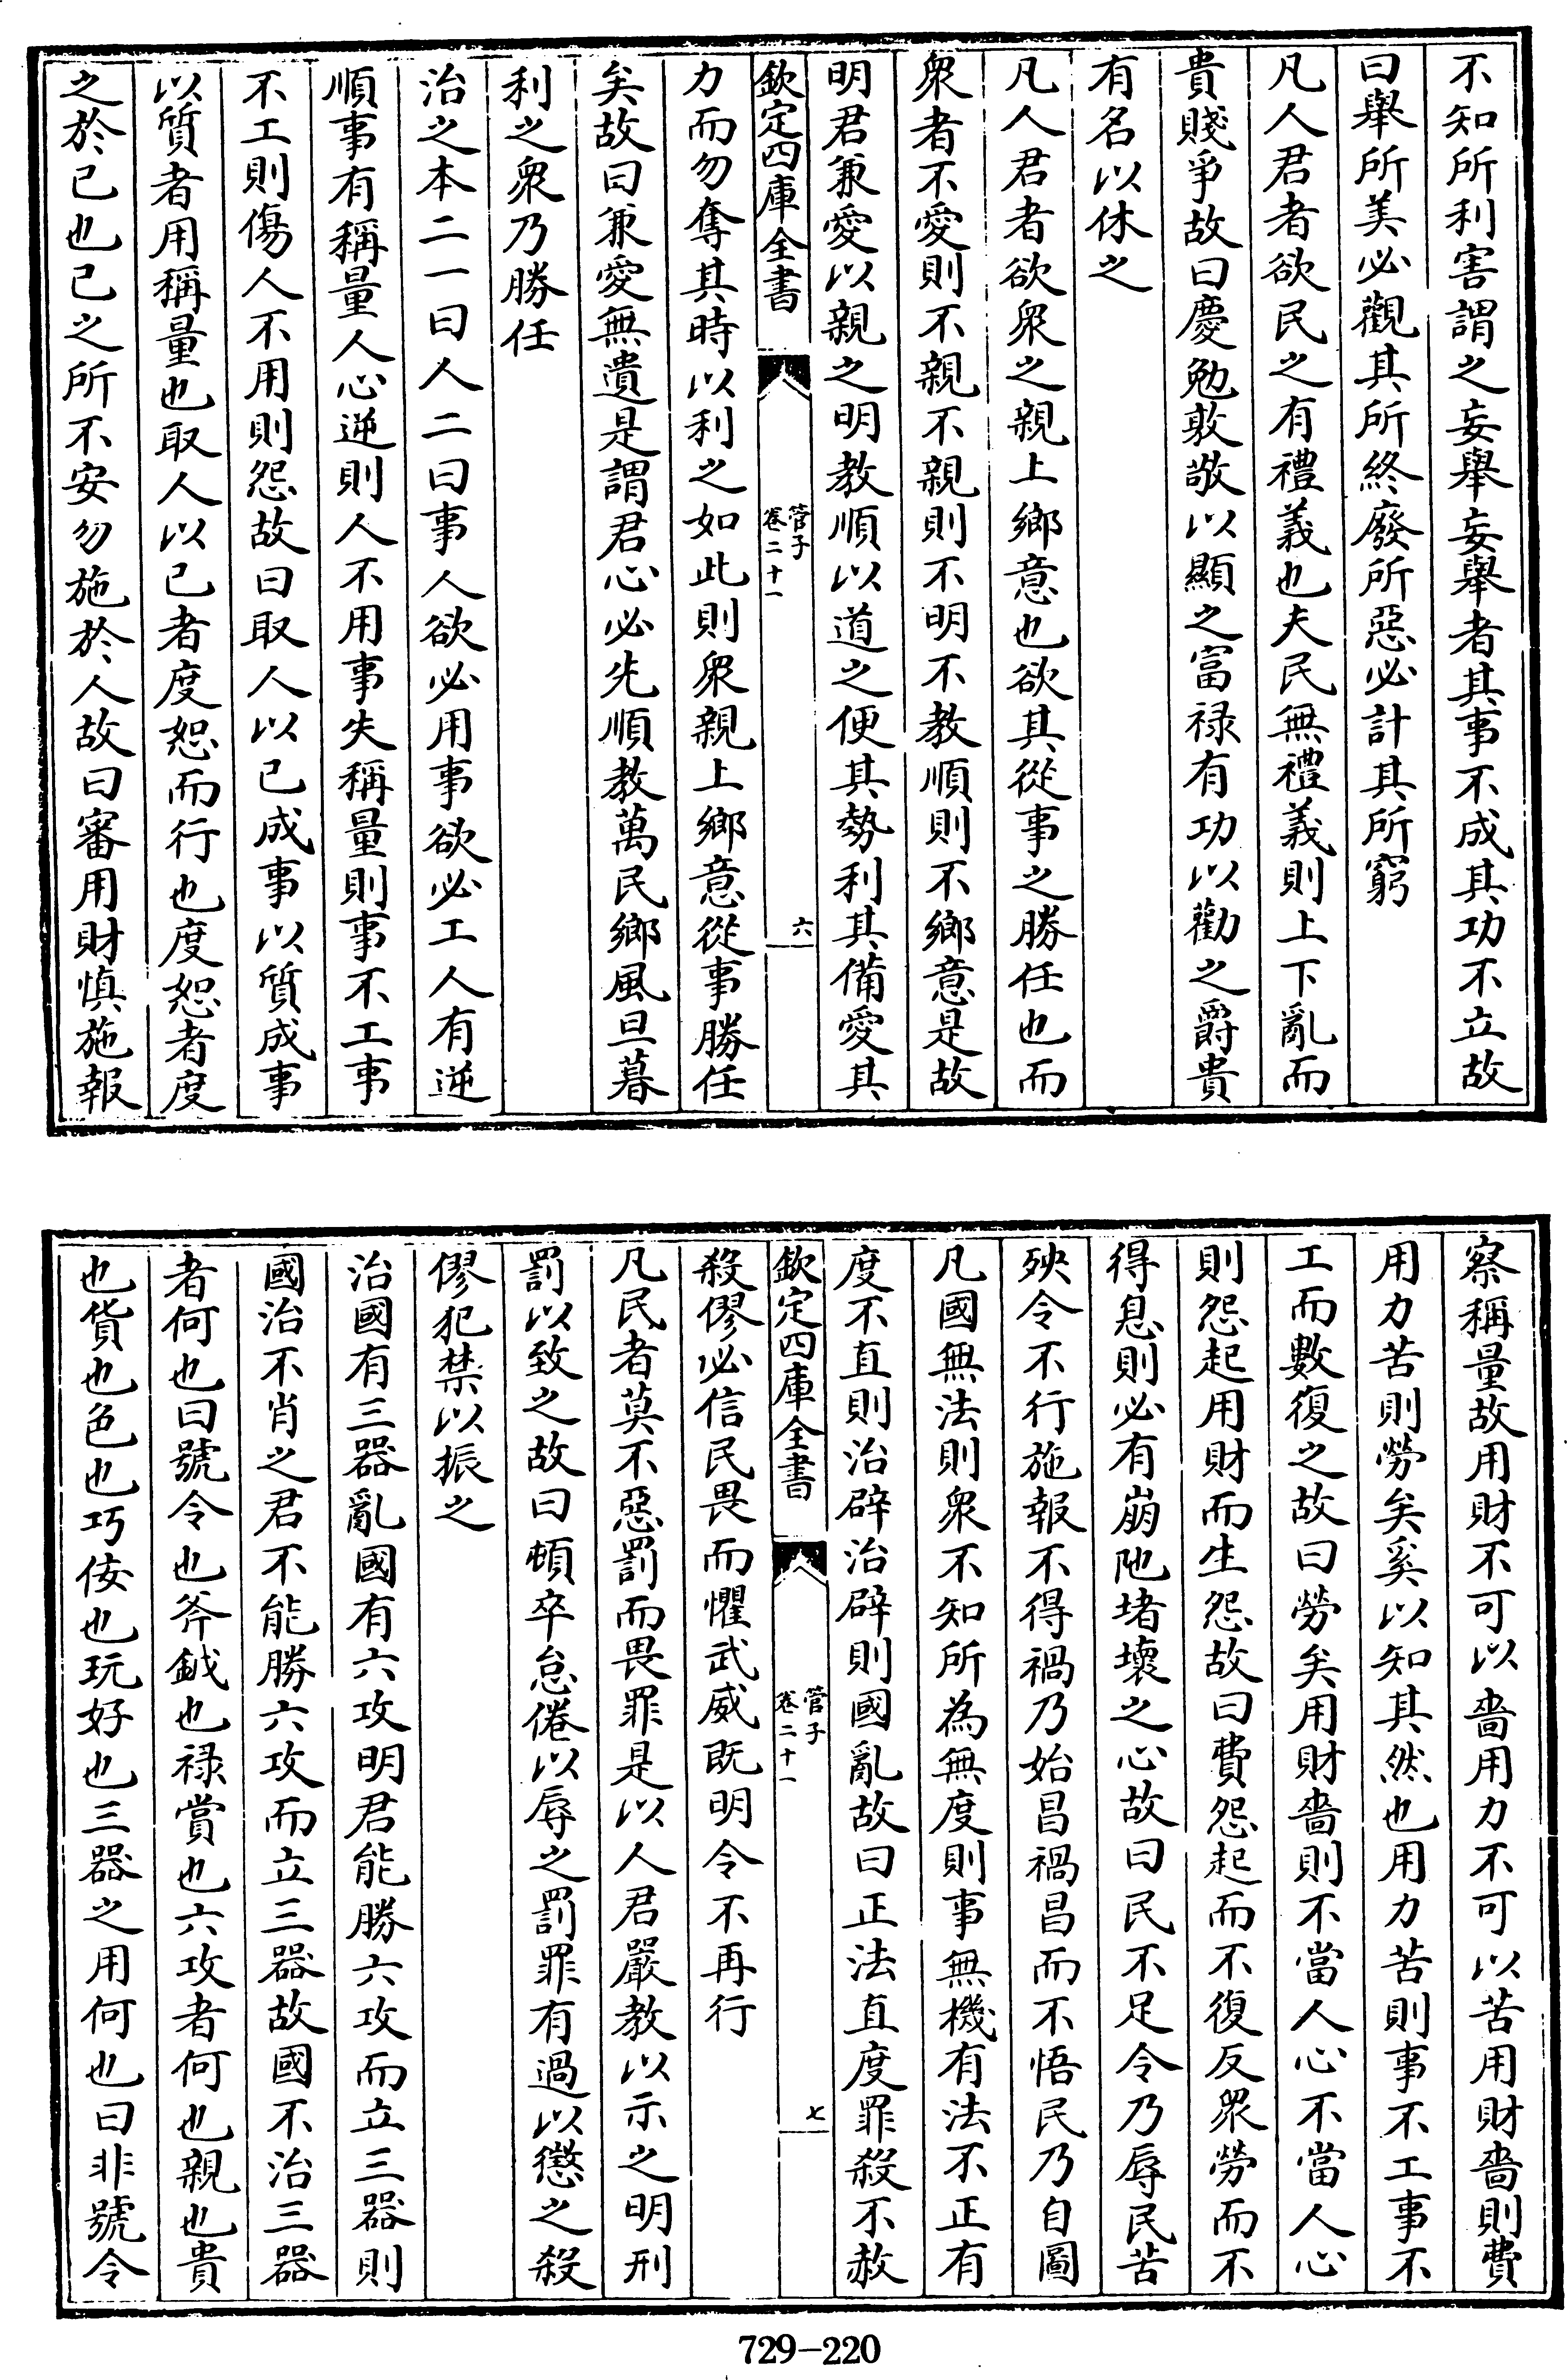 不知所利害謂之妄舉妄舉者其事不成其功不立故
曰舉所美必觀其所終廢所惡必計其所窮
凡人君者欲民之有禮義也夫民無禮義則上下亂而
貴賤爭故曰慶勉敦敬以顯之富禄有功以勸之爵貴
有名以休之
凡人君者欲衆之親上鄉意也欲其從事之勝任也而
衆者不愛則不親不親則不明不教順則不鄉意是故
明君兼愛以親之明教順以道之便其勢利其備愛其
欽定四庫全書
管子
卷二十一
六
力而勿奪其時以利之如此則衆親上鄉意從事勝任
矣故曰兼愛無遺是謂君心必先順教萬民鄉風旦暮
利之衆乃勝任
治之本二一曰人二曰事人欲必用事欲必工人有逆
順事有稱量人心逆則人不用事失稱量則事不工事
不工則傷人不用則怨故曰取人以已成事以質成事
以質者用稱量也取人以已者度恕而行也度恕者度
之於已也已之所不安勿施於人故曰審用財慎施報
察稱量故用財不可以嗇用力不可以苦用財嗇則費
用力苦則勞矣奚以知其然也用力苦則事不工事不
工而數復之故曰勞矣用財嗇則不當人心不當人心
則怨起用財而生怨故曰費怨起而不復反衆勞而不
得息則必有崩阤堵壞之心故曰民不足令乃辱民苦
殃令不行施報不得禍乃始昌禍昌而不悟民乃自圖
凡國無法則衆不知所為無度則事無機有法不正有
度不直則治辟治辟則國亂故曰正法直度罪殺不赦
欽定四庫全書
管子
卷二十一
七
殺僇必信民畏而懼武威既明令不再行
凡民者莫不惡罰而畏罪是以人君嚴教以示之明刑
罰以致之故曰頓卒怠倦以辱之罰罪有過以懲之殺
僇犯禁以振之
治國有三器亂國有六攻明君能勝六攻而立三器則
國治不肖之君不能勝六攻而立三器故國不治三器
者何也曰號令也斧鉞也禄賞也六攻者何也親也貴
也貨也色也巧佞也玩好也三器之用何也曰非號令
729-220